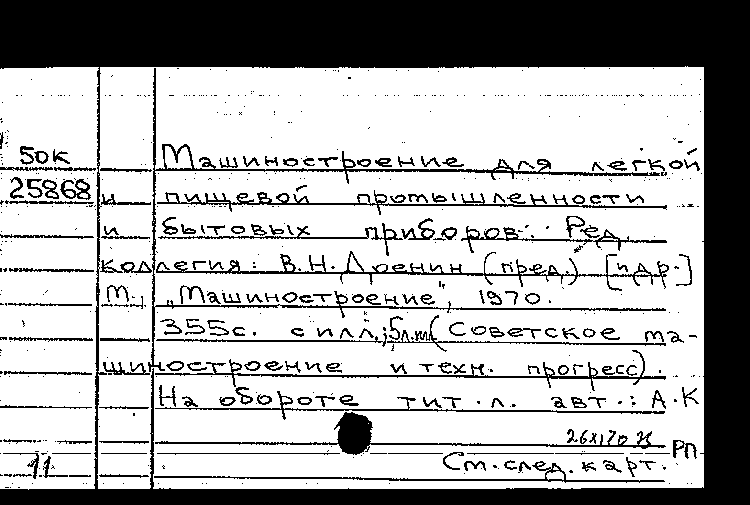 50К Машиностроение для легкой
25868 и пищевой промышленности
и бытовых приборов. Ред.
коллегия: В.Н. Доенин (пред.) [и др.]
М., „Машиностроение", 1970.
355с. с илл.; 5л.илл (Советское ма-
шиностроение и техн. прогресс).
На обороте тит.л. авт.: А.К
РП
11 См.след.карт.